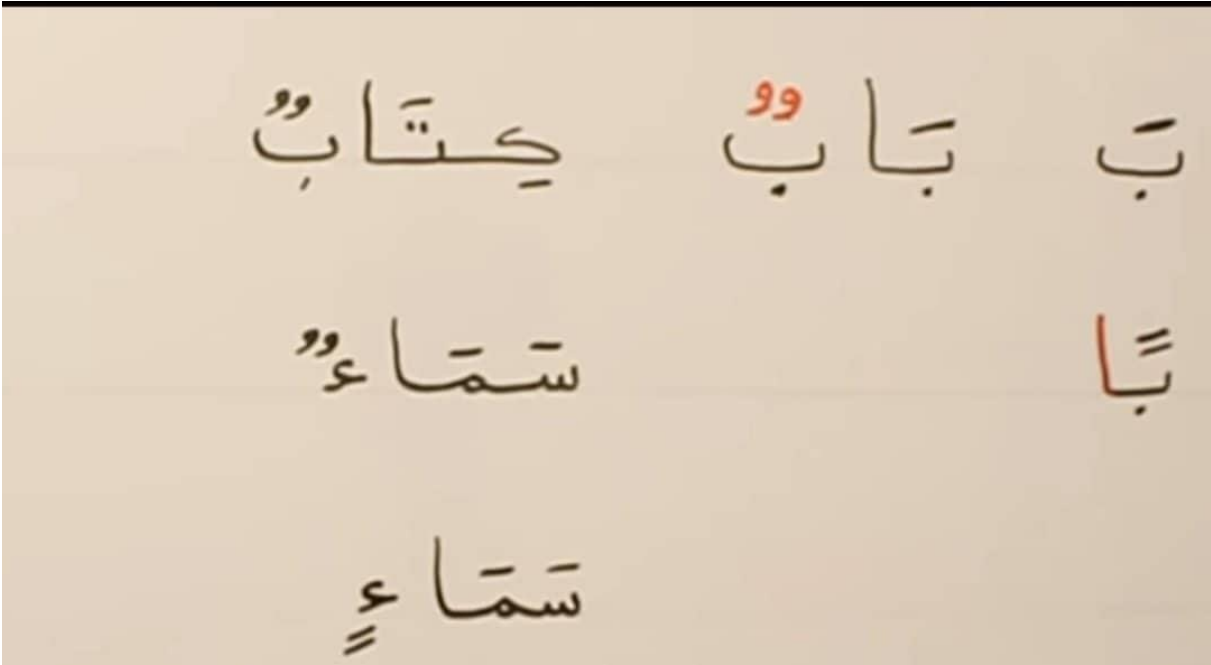 بَ بَابٌ كِتَابٌ
بًا سَمَاءٌ
سَمَاءٍ